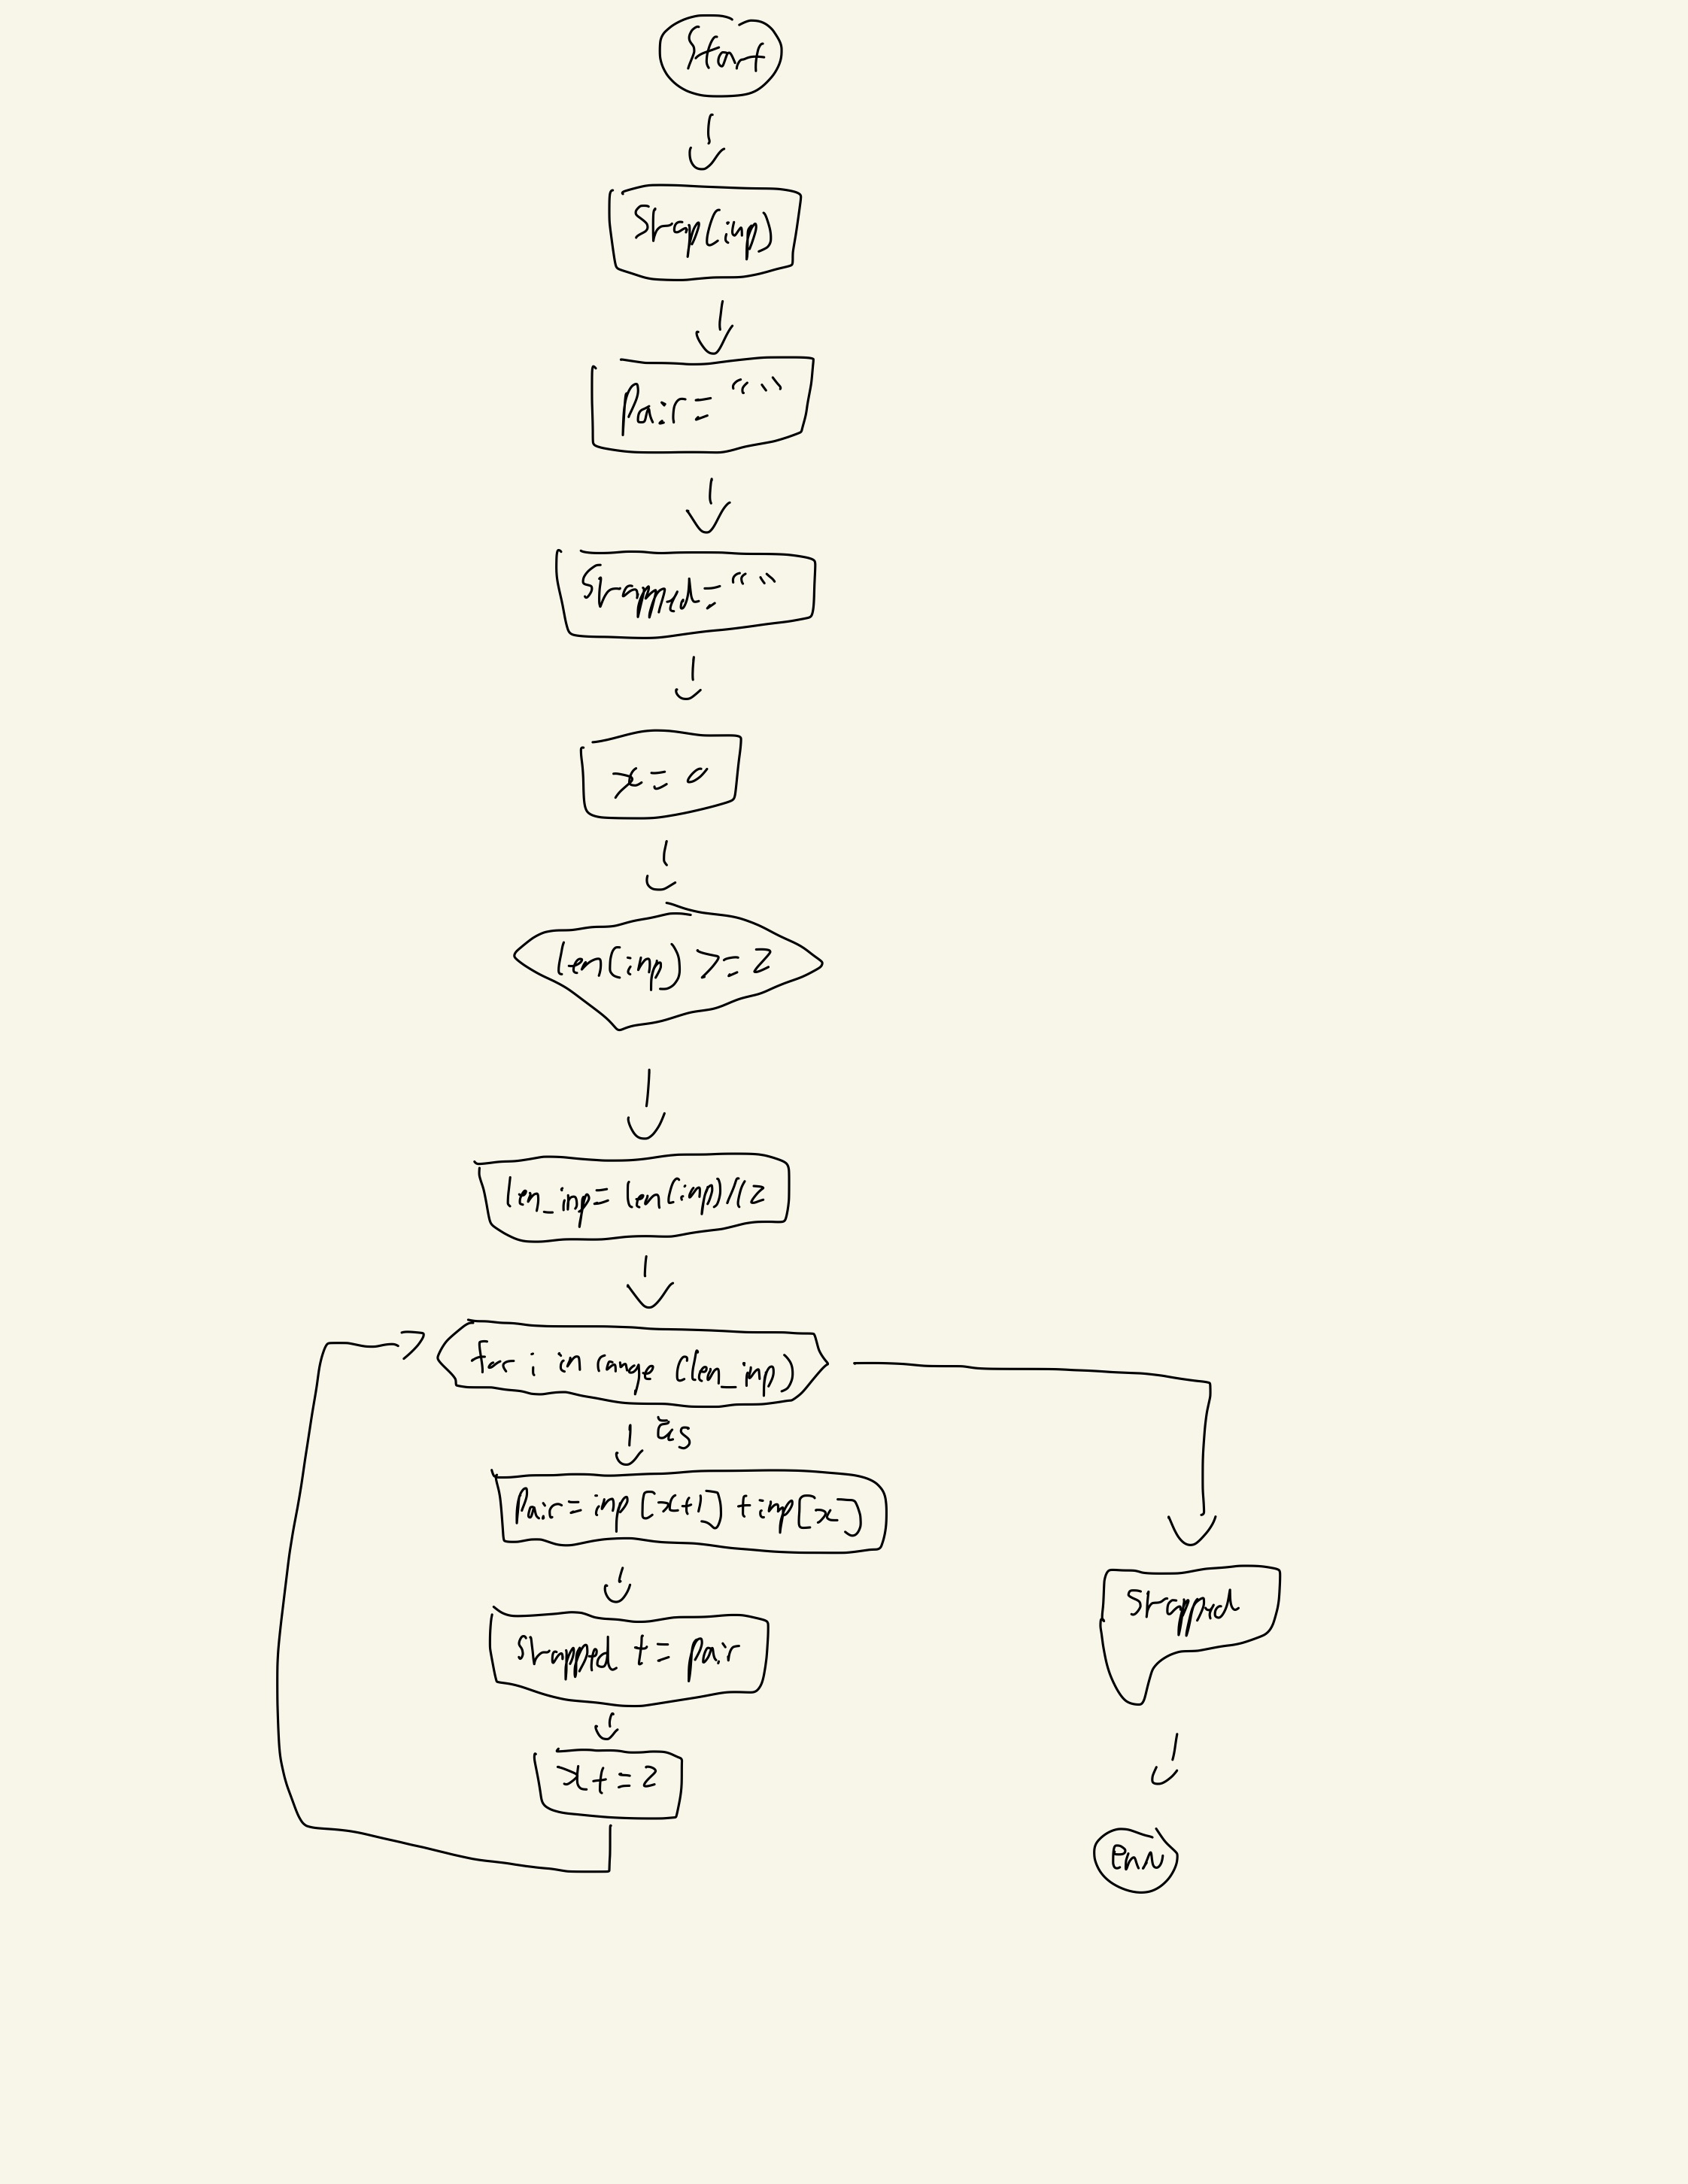 Start
Swap(inp)
Pair = “ ”
Swapped = “ ”
x = 0
len(inp) >= 2
len_inp = len(inp)//2
for i in range (len_inp)
Pair = inp[x+1] + inp[x]
swapped += pair
x += 2
swapped